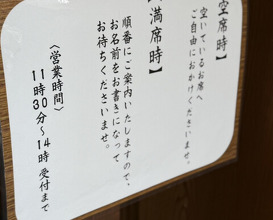 空席時】
空いているお席へ
ご自由におかけくださいませ。
満席時】
順番にご案内いたしますので、
お名前をお書きになって
お待ちくださいませ。
〈営業時間〉
11時30分〜14時 受付まで